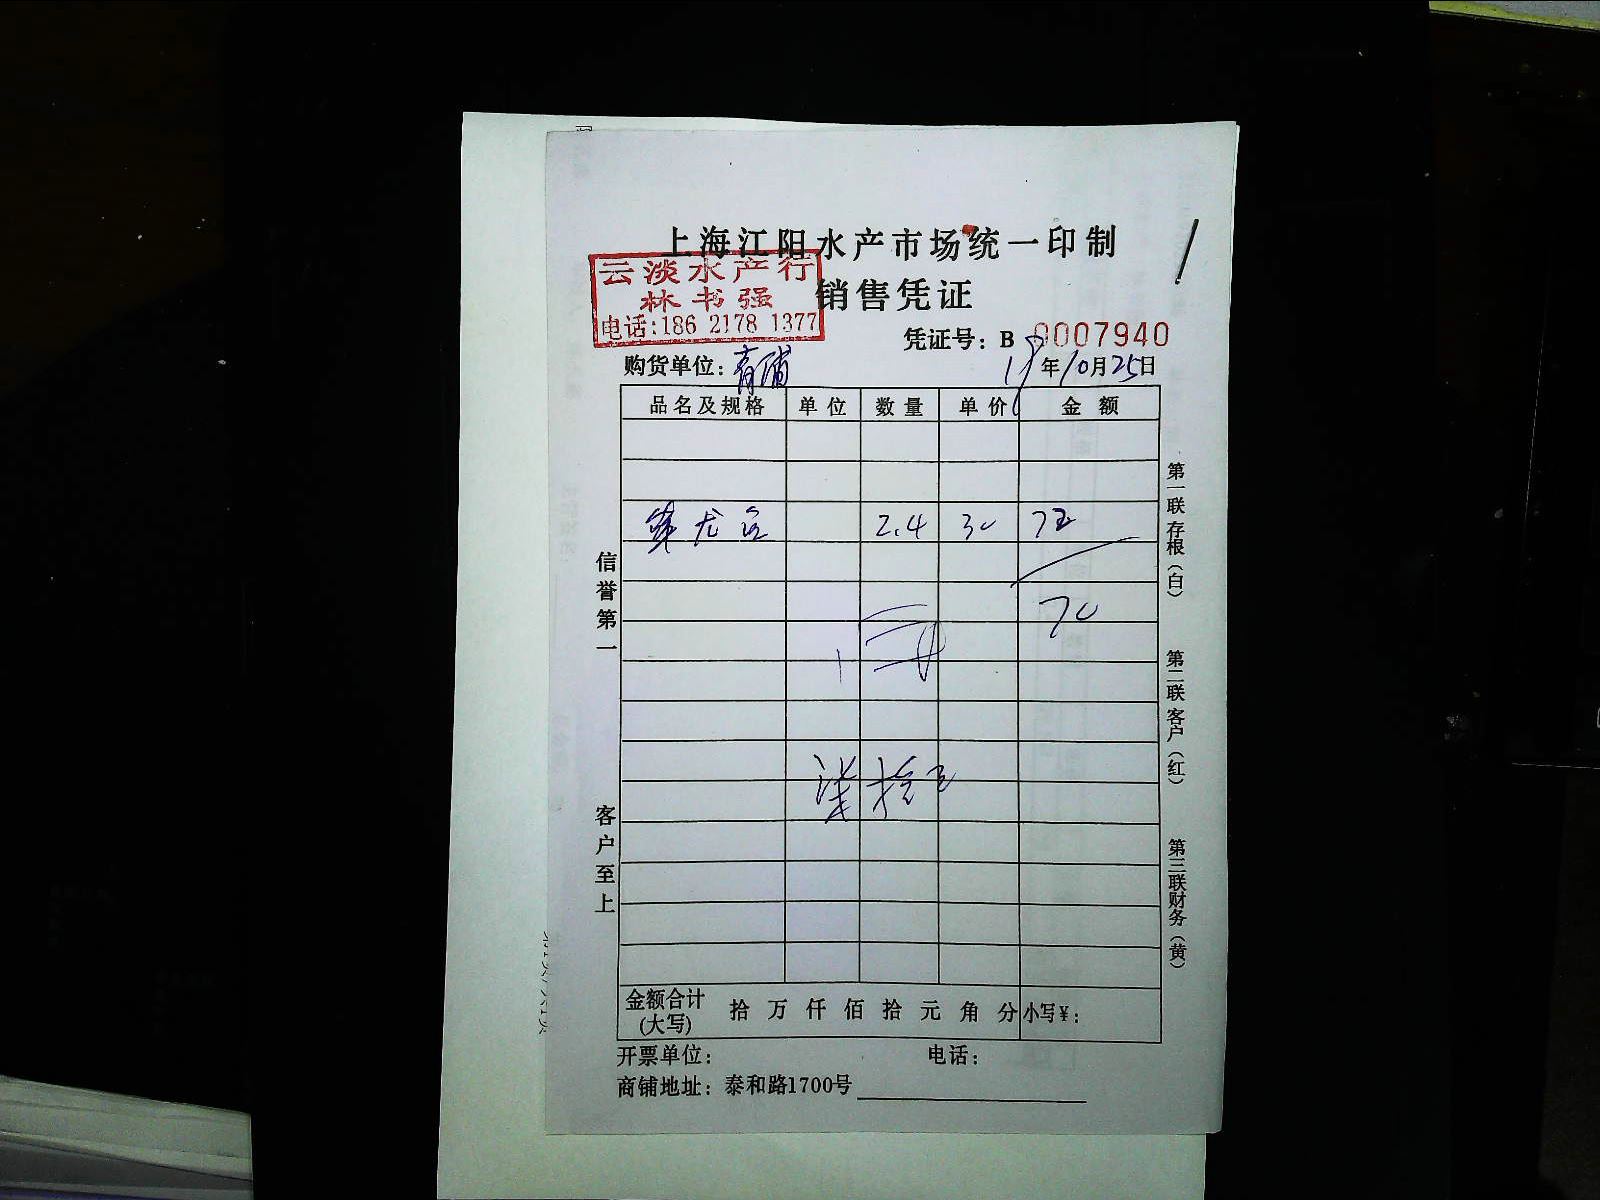 上海江阳水产市场统一印制
云淡水产行
林书强
电话:186 2178 1377
销售凭证
凭证号: B 0007940
购货单位: 青浦
19年10月25日
品名及规格 单位 数量 单价 金额
2.4 30 72
70
柒拾元
信誉第一
客户至上
第一联存根(白)
第二联客户(红)
第三联财务(黄)
金额合计(大写) 拾万仟佰拾元角分 小写¥:
开票单位: 电话:
商铺地址: 泰和路1700号